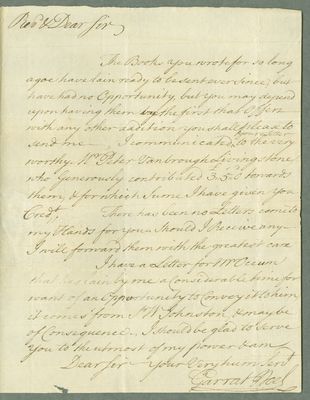 Revd & Dear Sir
The Books you wrote for so long
agoe have lain ready to be sent ever since, but
have had no Opportunity, but you may depend
upon having them by the first that Offers
with any other addition you shall please to
send me I communicated your Letter to the very
worthy Mr Peter Vanbrough Livingstone
who Generously contributed 3.5.6 towards
them, & for which Sume I have given you
Credt. There has been no Letters come to
my Hands for you Should I Receive any
I will forward them with the greatest care
I have a Letter for Mr Occum
that has lain by me a Considerable time for
want of an Opportunity to Convey it to him
it comes from Sr Wm Johnston & may be
of Consequence. I should be glad to Serve
you to the utmost of my power & am
Dear Sir Your Very hum Servt
Garrat Noel